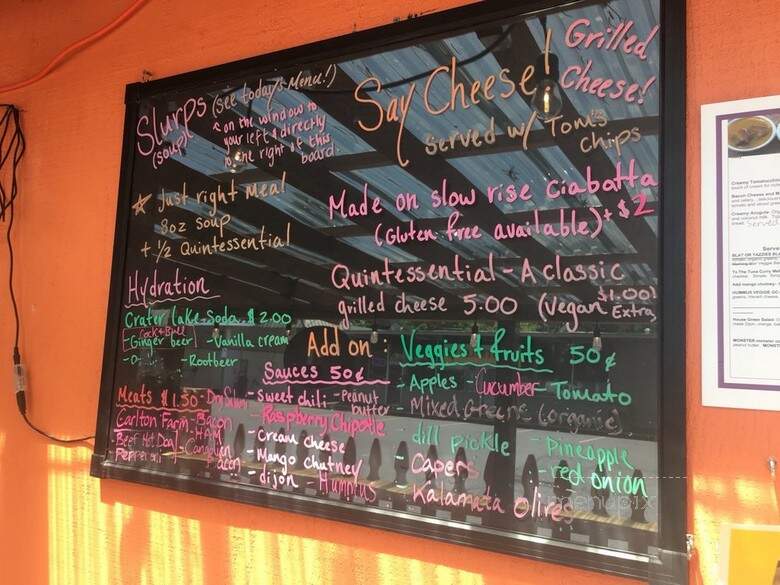 Slurps (see today's Menu!)
(soup)
on the window to
your left & directly
to the right of this
board.
Say Cheese!
Grilled
Cheese!
Served w/ Tom's
Chips
Just right meal
8oz soup
+ 1/2 Quintessential
Made on slow rise Ciabatta
(Gluten free available) + $2
Quintessential - A classic
grilled cheese 5.00 (Vegan $1.00 Extra)
Hydration
Crater Lake Soda $2.00
- Ginger beer - Vanilla cream
- Rootbeer
Add on:
Meats $1.50
Carlton Farm: Bacon
HAM
Beef Hot Dog
Canadian
Bacon
Sauces 50¢
- Sweet chili - Peanut
butter
- Raspberry Chipotle
- Cream cheese
- Mango Chutney
- dijon - Hummus
Veggies + fruits 50¢
- Apples - Cucumber - Tomato
- Mixed Greens (organic)
- dill pickle - Pineapple
- Capers - red onion
- Kalamata Olives
menupix